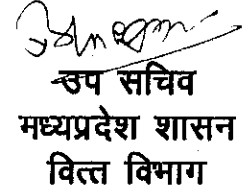 उप सचिव
मध्यप्रदेश शासन
वित्त विभाग